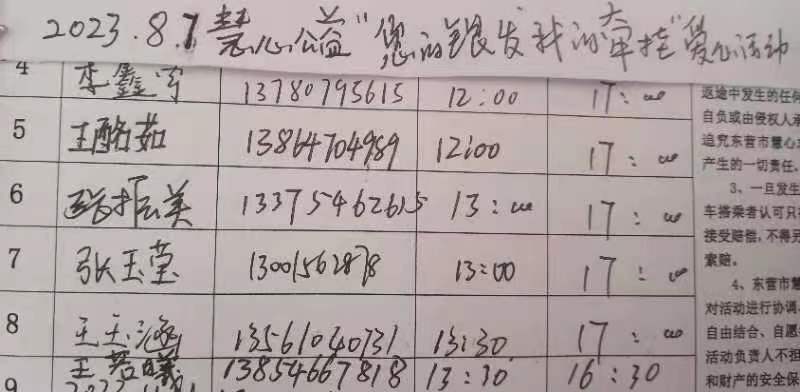 2023.8.7 慧心公益"您的银发我的牵挂"爱心活动
4 李鑫宇 13780795615 12:00 17:00
5 王酩茹 13864704989 12:00 17:00
6 振美 13375462615 13:00 17:00
7 张玉莹 13001562878 13:00 17:00
8 王玉涵 13561040731 13:30 17:00
9 王若曦 13854667818 13:30 16:30
返途中发生的任何
自负或由侵权人承
追究东营市慧心
产生的一切责任。
3、一旦发生
车搭乘者认可只
接受赔偿,不得
索赔。
4、东营市慧
对活动进行协调
自由结合、自愿
活动负责人不担
和财产的安全保